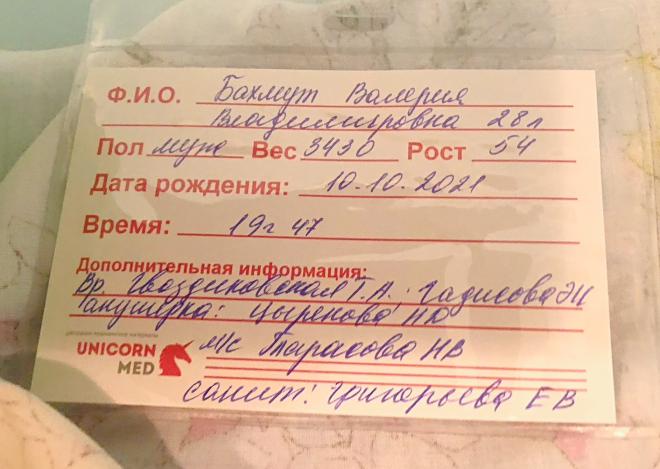 Ф.И.О. Бахмут Валерия
Владимировна 28л
Пол муж Вес 3430 Рост 54
Дата рождения: 10.10.2021
Время: 19г 47
Дополнительная информация:
Вр. Гвоздиковская Г.А.; Гадисова ЭН
акушерка: Цыренова НЮ
UNICORN
MED
м/с Тарасова НВ
санит: Григорьева ЕВ